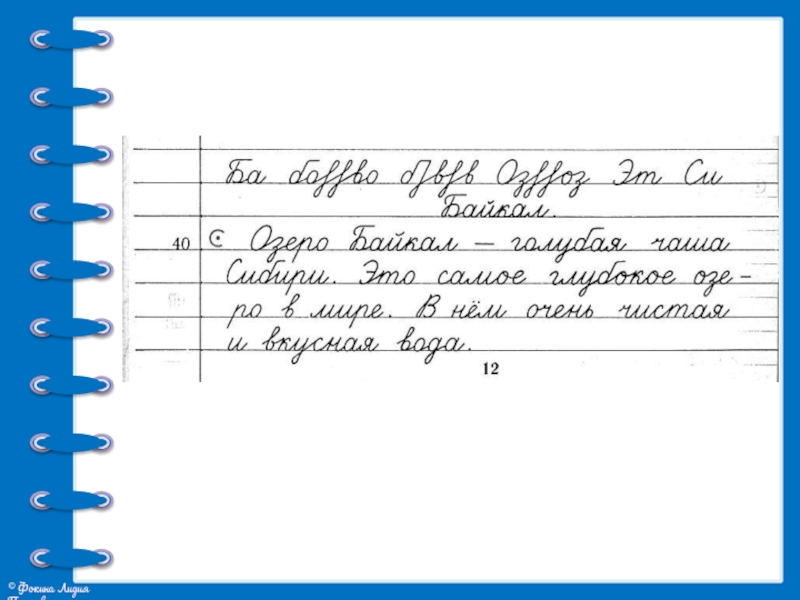 Ба боʃʃво бʃвʃʃв Озʃʃоз Эт Си
Байкал.
40 Озеро Байкал – голубая чаша
Сибири. Это самое глубокое озе-
ро в мире. В нём очень чистая
и вкусная вода.
12
© Фокина Лидия